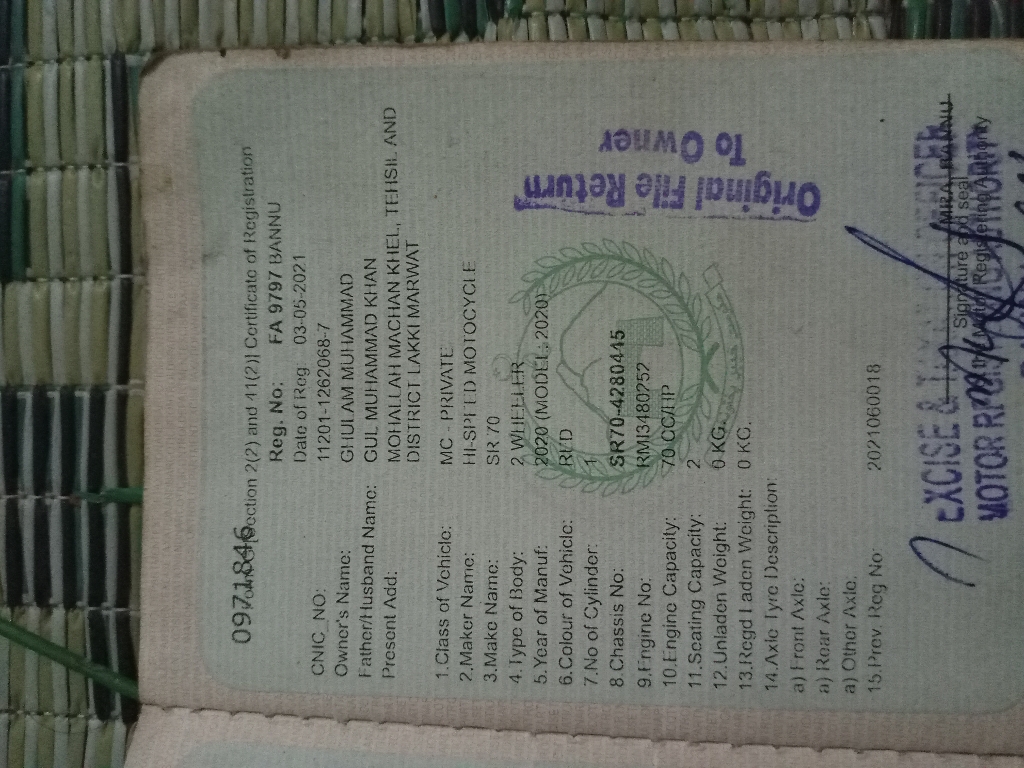 0971846
Section 2(2) and 41(2)] Certificate of Registration
Reg. No: FA 9797 BANNU
Date of Reg 03-05-2021
CNIC_NO: 11201-1262068-7
Owner's Name: GHULAM MUHAMMAD
Father/Husband Name: GUL MUHAMMAD KHAN
Present Add: MOHALLAH MACHAN KHEL, TEHSIL AND
DISTRICT LAKKI MARWAT
1.Class of Vehicle: MC - PRIVATE
2.Maker Name: HI-SPEED MOTOCYCLE
3.Make Name: SR 70
4.Type of Body: 2 WHEELER
5.Year of Manuf: 2020 (MODEL: 2020)
6.Colour of Vehicle: RED
7.No of Cylinder: 1
8.Chassis No: SR70-4280445
9.Engine No: RMI3480252
10.Engine Capacity: 70 CC/HP
11.Seating Capacity: 2
12.Unladen Weight: 0 KG.
13.Regd Laden Weight: 0 KG.
14.Axle Tyre Description:
a) Front Axle:
a) Rear Axle:
a) Other Axle:
15.Prev. Reg No: 2021060018
Original File Return
To Owner
MRA BANNU
Signature and seal
Registering Authority
EXCISE & OFFICER
MOTOR AUTHORITY